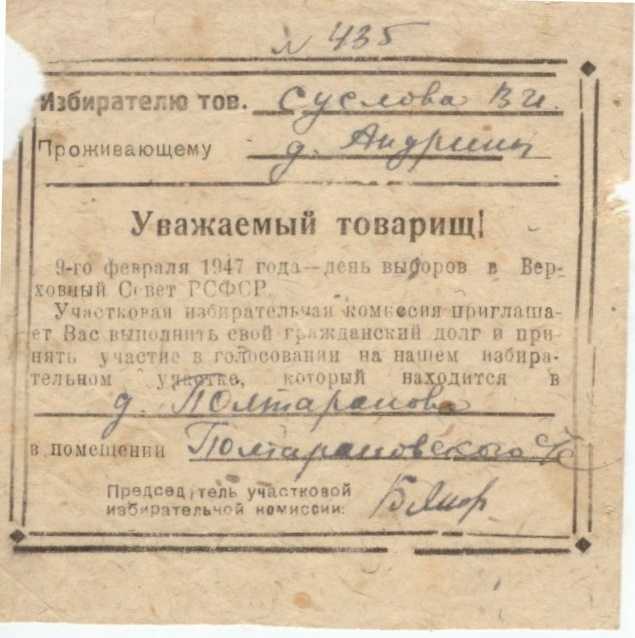 № 435
Избирателю тов. Суслова В И.
Проживающему д. Андрины
Уважаемый товарищ!
9-го февраля 1947 года—день выборов в Вер-
ховный Совет РСФСР.
Участковая избирательная комиссия приглаша-
ет Вас выполнить свой гражданский долг и при-
нять участие в голосовании на нашем избира-
тельном участке, который находится в
д. Полтарапова
в помещении
Председатель участковой
избирательной комиссии: